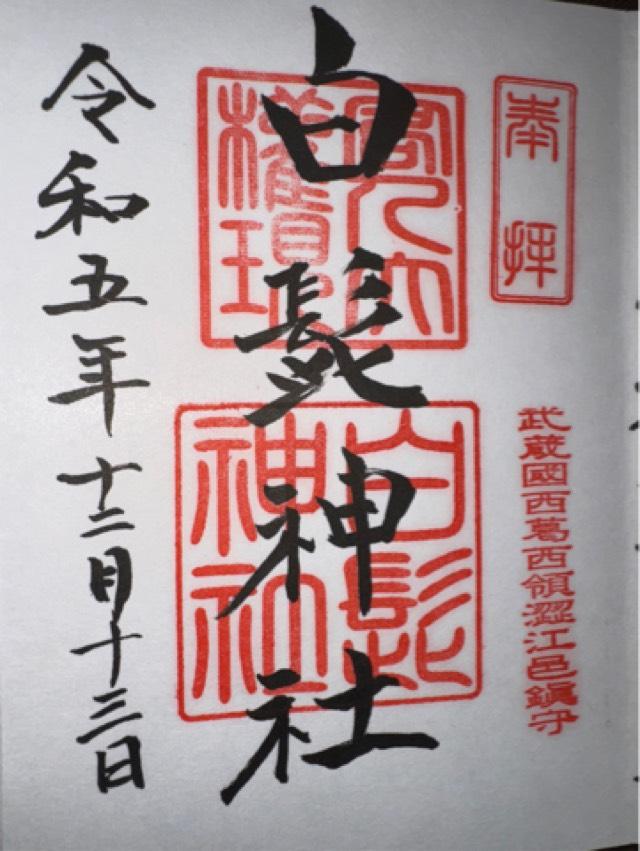 奉拝
武蔵國西葛西領澀江邑鎭守
白髭神社
客人大
權現
白髭
神社
令和五年十二月十三日